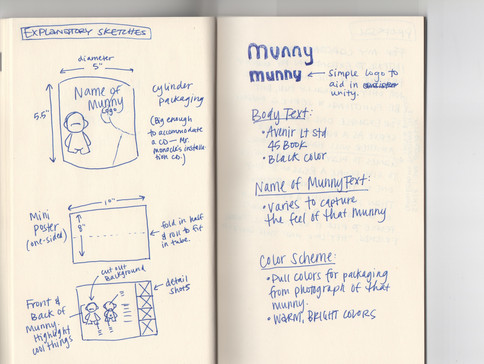 EXPLANATORY SKETCHES
diameter
5"
5.5"
Name of
Munny
Logo
cylinder
packaging
(Big enough
to accommodate
a CD — Mr.
monacles installa-
tion CD.)
Mini
Poster
(one-sided)
10"
8"
fold in half
& roll to fit
in tube.
cut out
background
Front &
Back of
Munny.
Highlight
cool things
detail
shots
munny
munny
simple logo to
aid in
unity.
Body Text:
• Avenir Lt Std
45 Book
• Black color
Name of Munny Text:
• Varies to capture
the feel of that Munny
Color Scheme:
• Pull colors for packaging
from photograph of that
munny.
• WARM, BRIGHT COLORS